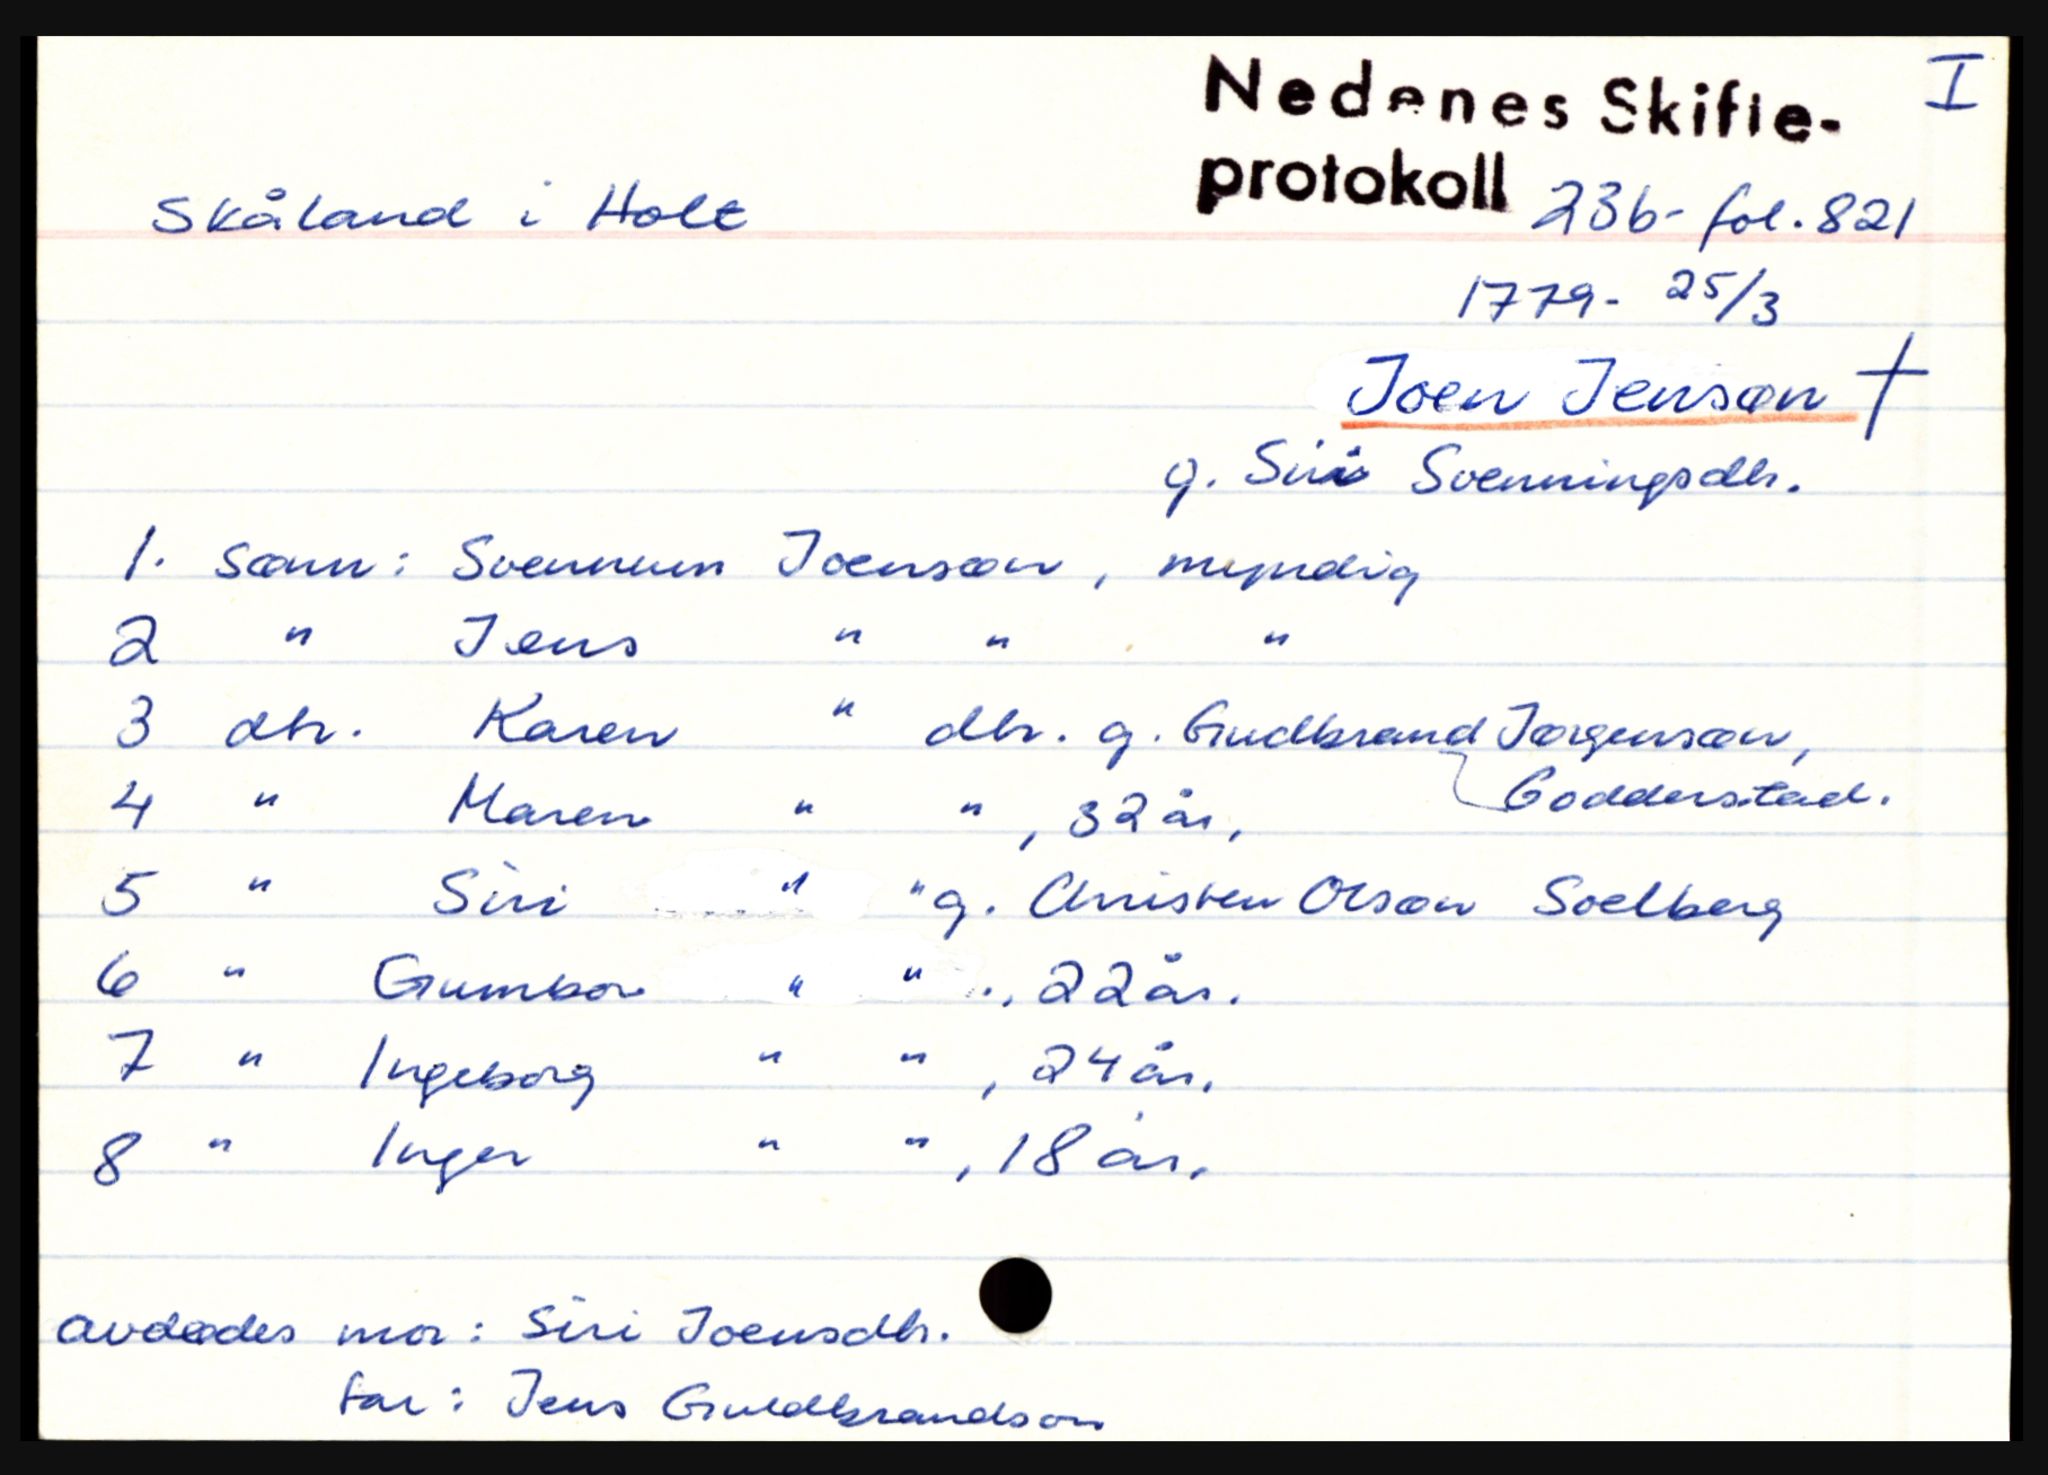 Nedenes Skifte- I
protokoll 23b- fol. 821
Skåland i Holt
1779- 25/3
Joen Jensøn †
g. Siri Svenningsdtr.
1. sønn: Svennum Joensøn, myndig
2 " Jens " " "
3 dtr. Karen " dtr. g. Gudbrand Jørgensøn,
Godderstad.
4 " Maren " " , 32 år.
5 " Siri " " g. Christen Olsøn Soelberg
6 " Gumbor " " ., 22 år.
7 " Ingeborg " " , 24 år.
8 " Inger " " , 18 år.
avdødes mor: Siri Joensdtr.
far: Jens Guldbrandson